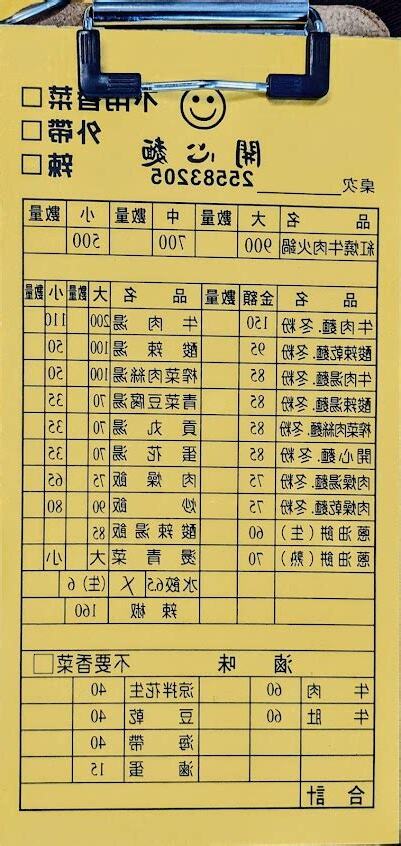 不用香菜 □
外帶 □
辣 □
開心麵
25583205
桌次
品名 大 數量 中 數量 小 數量
紅燒牛肉火鍋 900 700 500
品名 金額 數量 品名 大 數量 小 數量
牛肉麵.冬粉 150 牛肉湯 200 110
酸辣乾麵.冬粉 95 酸辣湯 100 50
牛肉湯麵.冬粉 85 榨菜肉絲湯 100 50
酸辣湯麵.冬粉 85 青菜豆腐湯 70 35
榨菜肉絲麵.冬粉 85 貢丸湯 70 35
開心麵.冬粉 85 蛋花湯 70 35
肉燥湯麵.冬粉 75 肉燥飯 75 65
肉燥乾麵.冬粉 75 炒飯 90 80
蔥油餅(生) 60 酸辣湯飯 85
蔥油餅(熟) 70 燙青菜 大 小
水餃6.5 X (生) 6
辣椒 160
滷味 不要香菜□
牛肉 60 涼拌花生 40
牛肚 60 豆乾 40
海帶 40
滷蛋 15
合計